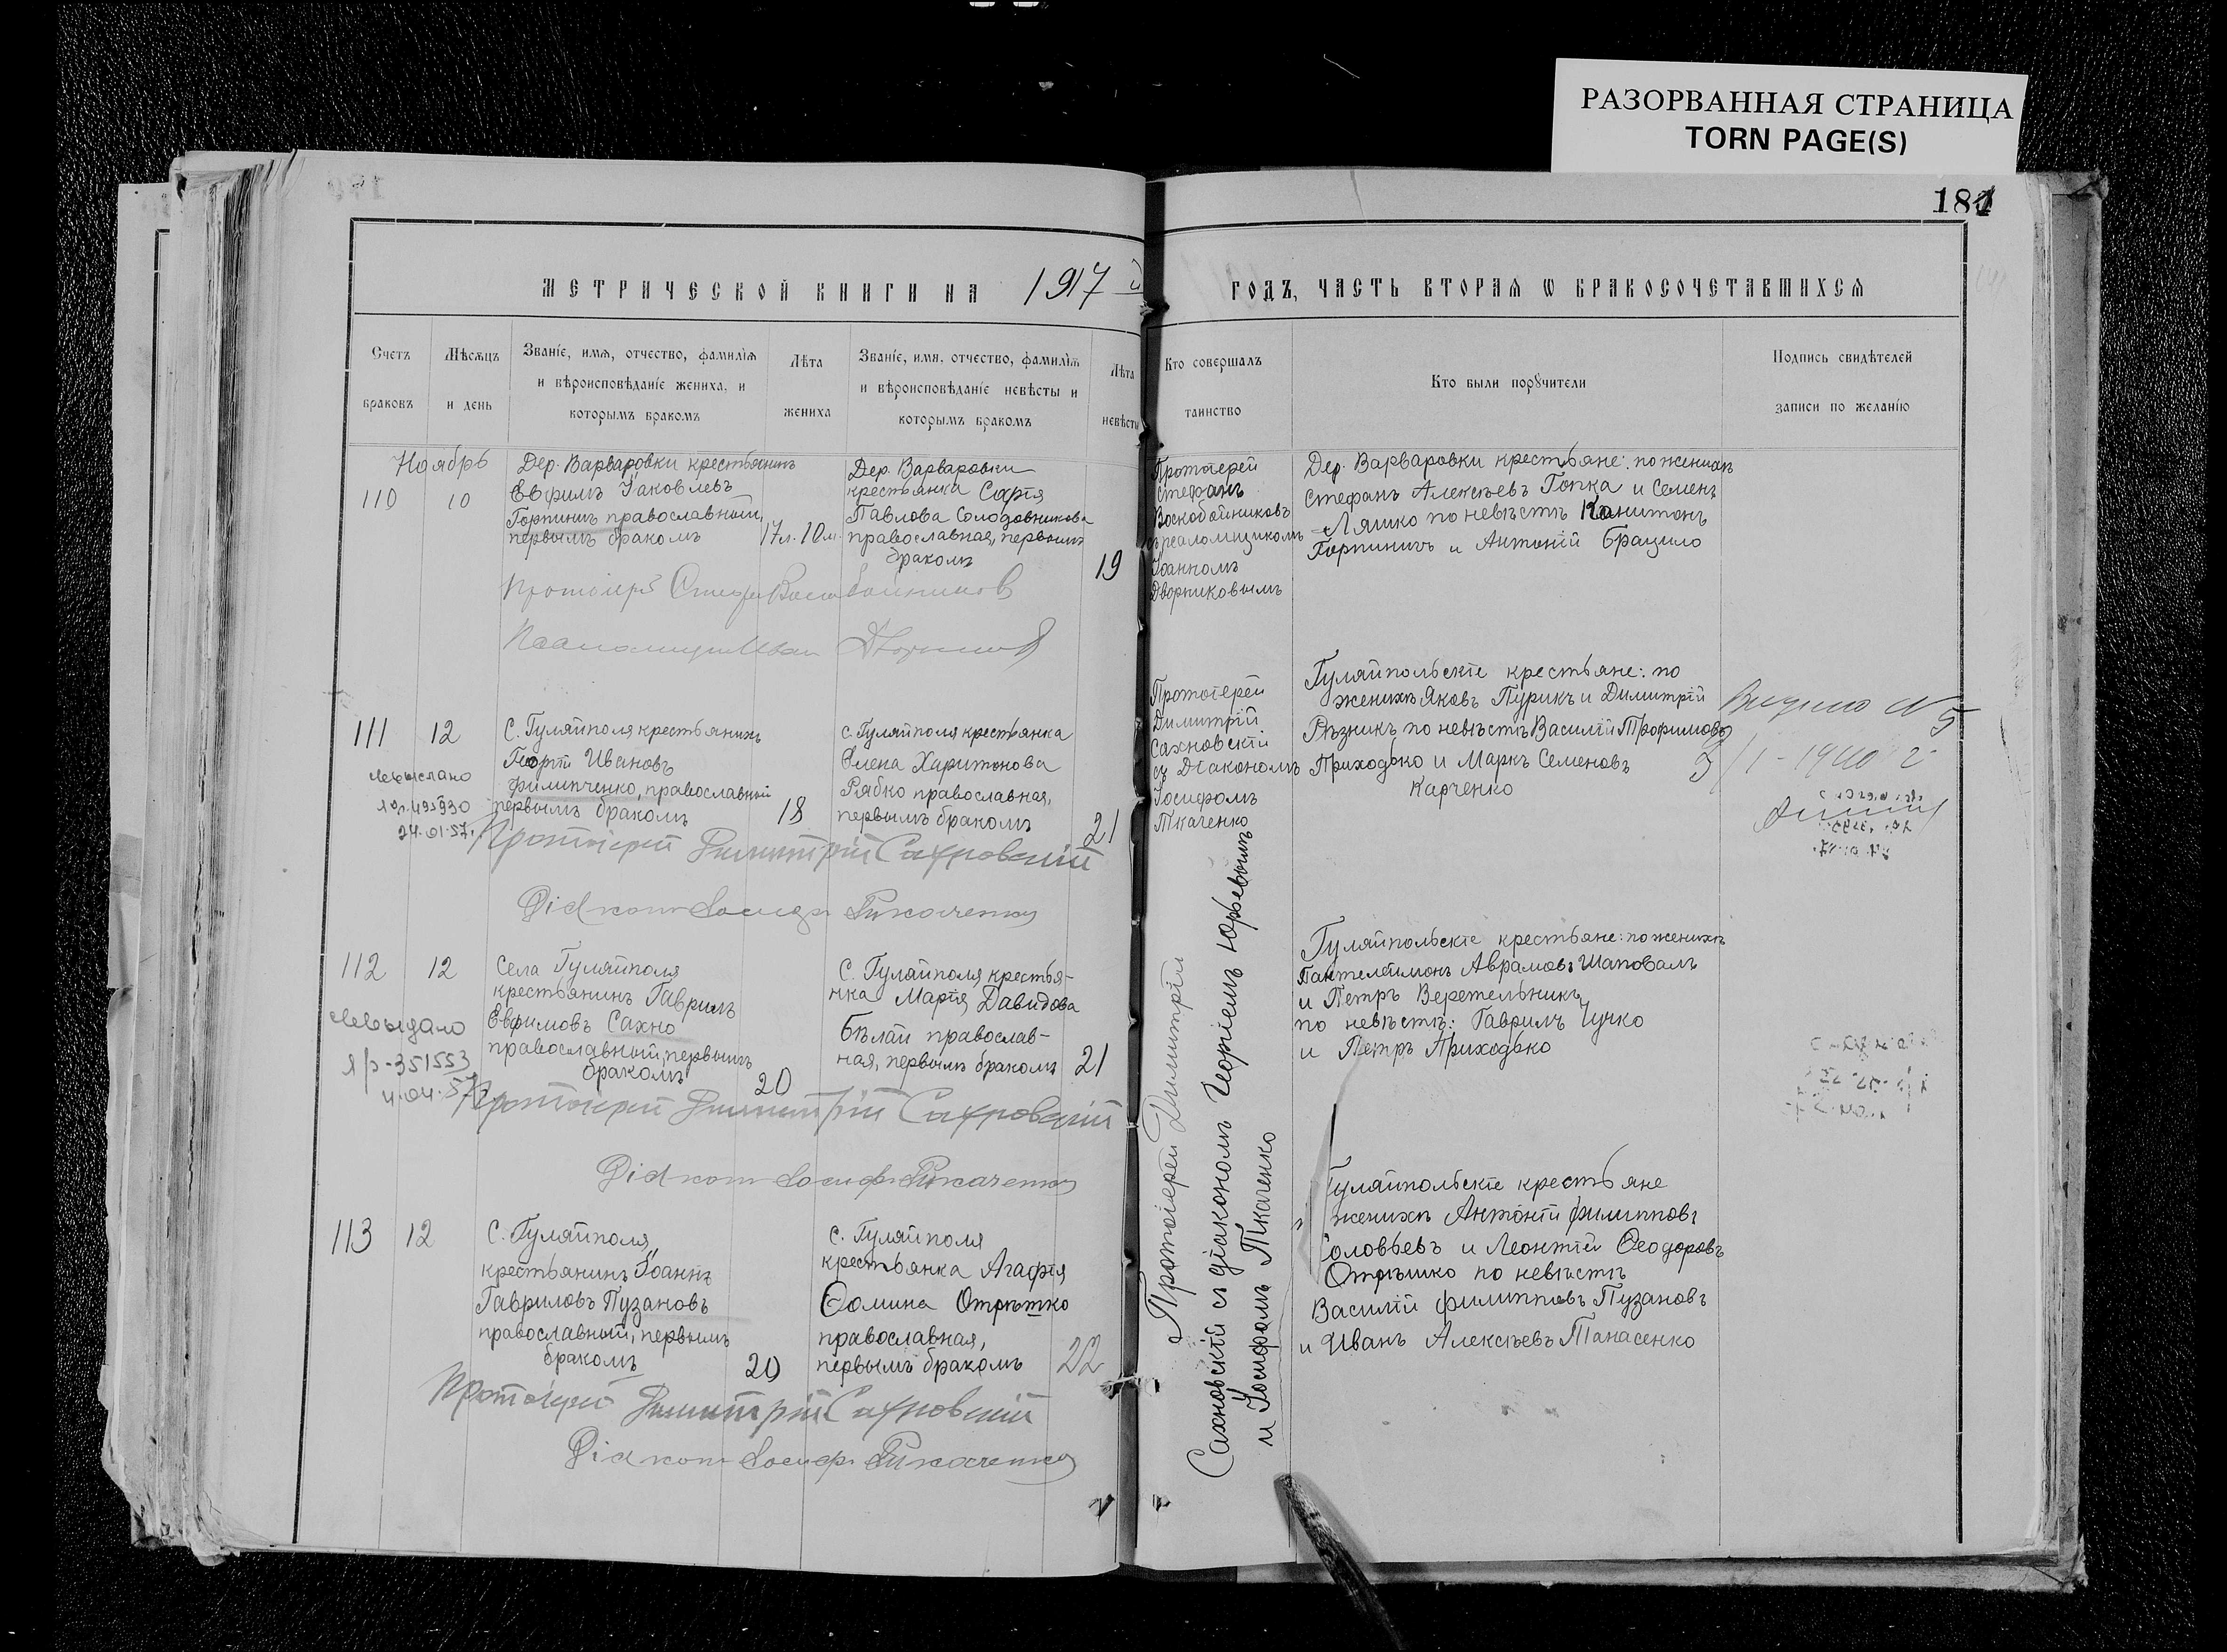 РАЗОРВАННАЯ СТРАНИЦА
TORN PAGE(S)
181
МЕТРИЧЕСКОЙ КНИГИ НА 1917 й
ГОДЪ, ЧАСТЬ ВТОРАЯ Ѡ БРАКОСОЧЕТАВШИХСЯ
Счетъ
браковъ
Мѣсяцъ
и день
Званіе, имя, отчество, фамилія
и вѣроисповѣданіе жениха, и
которымъ бракомъ
Лѣта
жениха
Званіе, имя, отчество, фамилія
и вѣроисповѣданіе невѣсты и
которымъ бракомъ
Лѣта
невѣсты
Кто совершалъ
таинство
Кто были порꙋчители
Подпись свидѣтелей
записи по желанію
Ноябрь
110
10
Дер. Варваровки крестьянинъ
Евфимъ Іаковлевъ
Горпиничъ православный,
первымъ бракомъ
17л. 10м.
Дер. Варваровки
крестьянка Софія
Павлова Солодовникова
православная, первымъ
бракомъ
19
Протоіерей
Стефанъ
Воскобойниковъ
съ псаломщикомъ
Іоанномъ
Дворниковымъ
Дер. Варваровки крестьяне: по женихѣ
Стефанъ Алексѣевъ Гопка и Семенъ
Ляшко по невѣстѣ Капитонъ
Горпиничъ и Антоній Брацило
111
12
С. Гуляйполя крестьянинъ
Георгій Ивановъ
Филипченко, православный
первымъ бракомъ
18
с. Гуляйполя крестьянка
Елена Харитонова
Рябко православная,
первымъ бракомъ
21
495930
24.01.57.
Протоіерей Димитрій Сахновскій
Діаконъ Іосифъ Ткаченко
Протоіерей
Димитрій
Сахновскій
съ Діакономъ
Іосифомъ
Ткаченко
Гуляйпольскіе крестьяне: по
женихѣ Яковъ Пурикъ и Димитрій
Рѣзникъ по невѣстѣ Василій Трофимовъ
Приходько и Маркъ Семеновъ
Карченко
Видано N 5
3/I - 1940 г
112
12
Села Гуляйполя
крестьянинъ Гавриилъ
Евфимовъ Сахно
православный, первымъ
бракомъ
20
С. Гуляйполя крестья-
нка Марія Давидова
Бѣлай православ-
ная, первымъ бракомъ
21
351553
Протоіерей Димитрій Сахновскій
Діаконъ Іосифъ Ткаченко
Гуляйпольскіе крестьяне: по женихѣ
Пантелеимонъ Аврамовъ Шаповалъ
и Петръ Веретельникъ
по невѣстѣ: Гавриилъ Чучко
и Петръ Приходько
113
12
С. Гуляйполя,
крестьянинъ Іоаннъ
Гавриловъ Пузановъ
православный, первымъ
бракомъ
20
с. Гуляйполя
крестьянка Агафія
Ѳомина Отрѣшко
православная,
первымъ бракомъ
22
Протоіерей Димитрій Сахновскій
Діаконъ Іосифъ Ткаченко
Протоіерей Димитрій
Сахновскій съ діакономъ Георгіемъ Юрьевымъ
и Іосифомъ Ткаченко
Гуляйпольскіе крестьяне
женихѣ Антоній Филипповъ
Соловьевъ и Леонтій Ѳеодоровъ
Отрѣшко по невѣстѣ
Василій Филипповъ Пузановъ
и Иванъ Алексѣевъ Танасенко